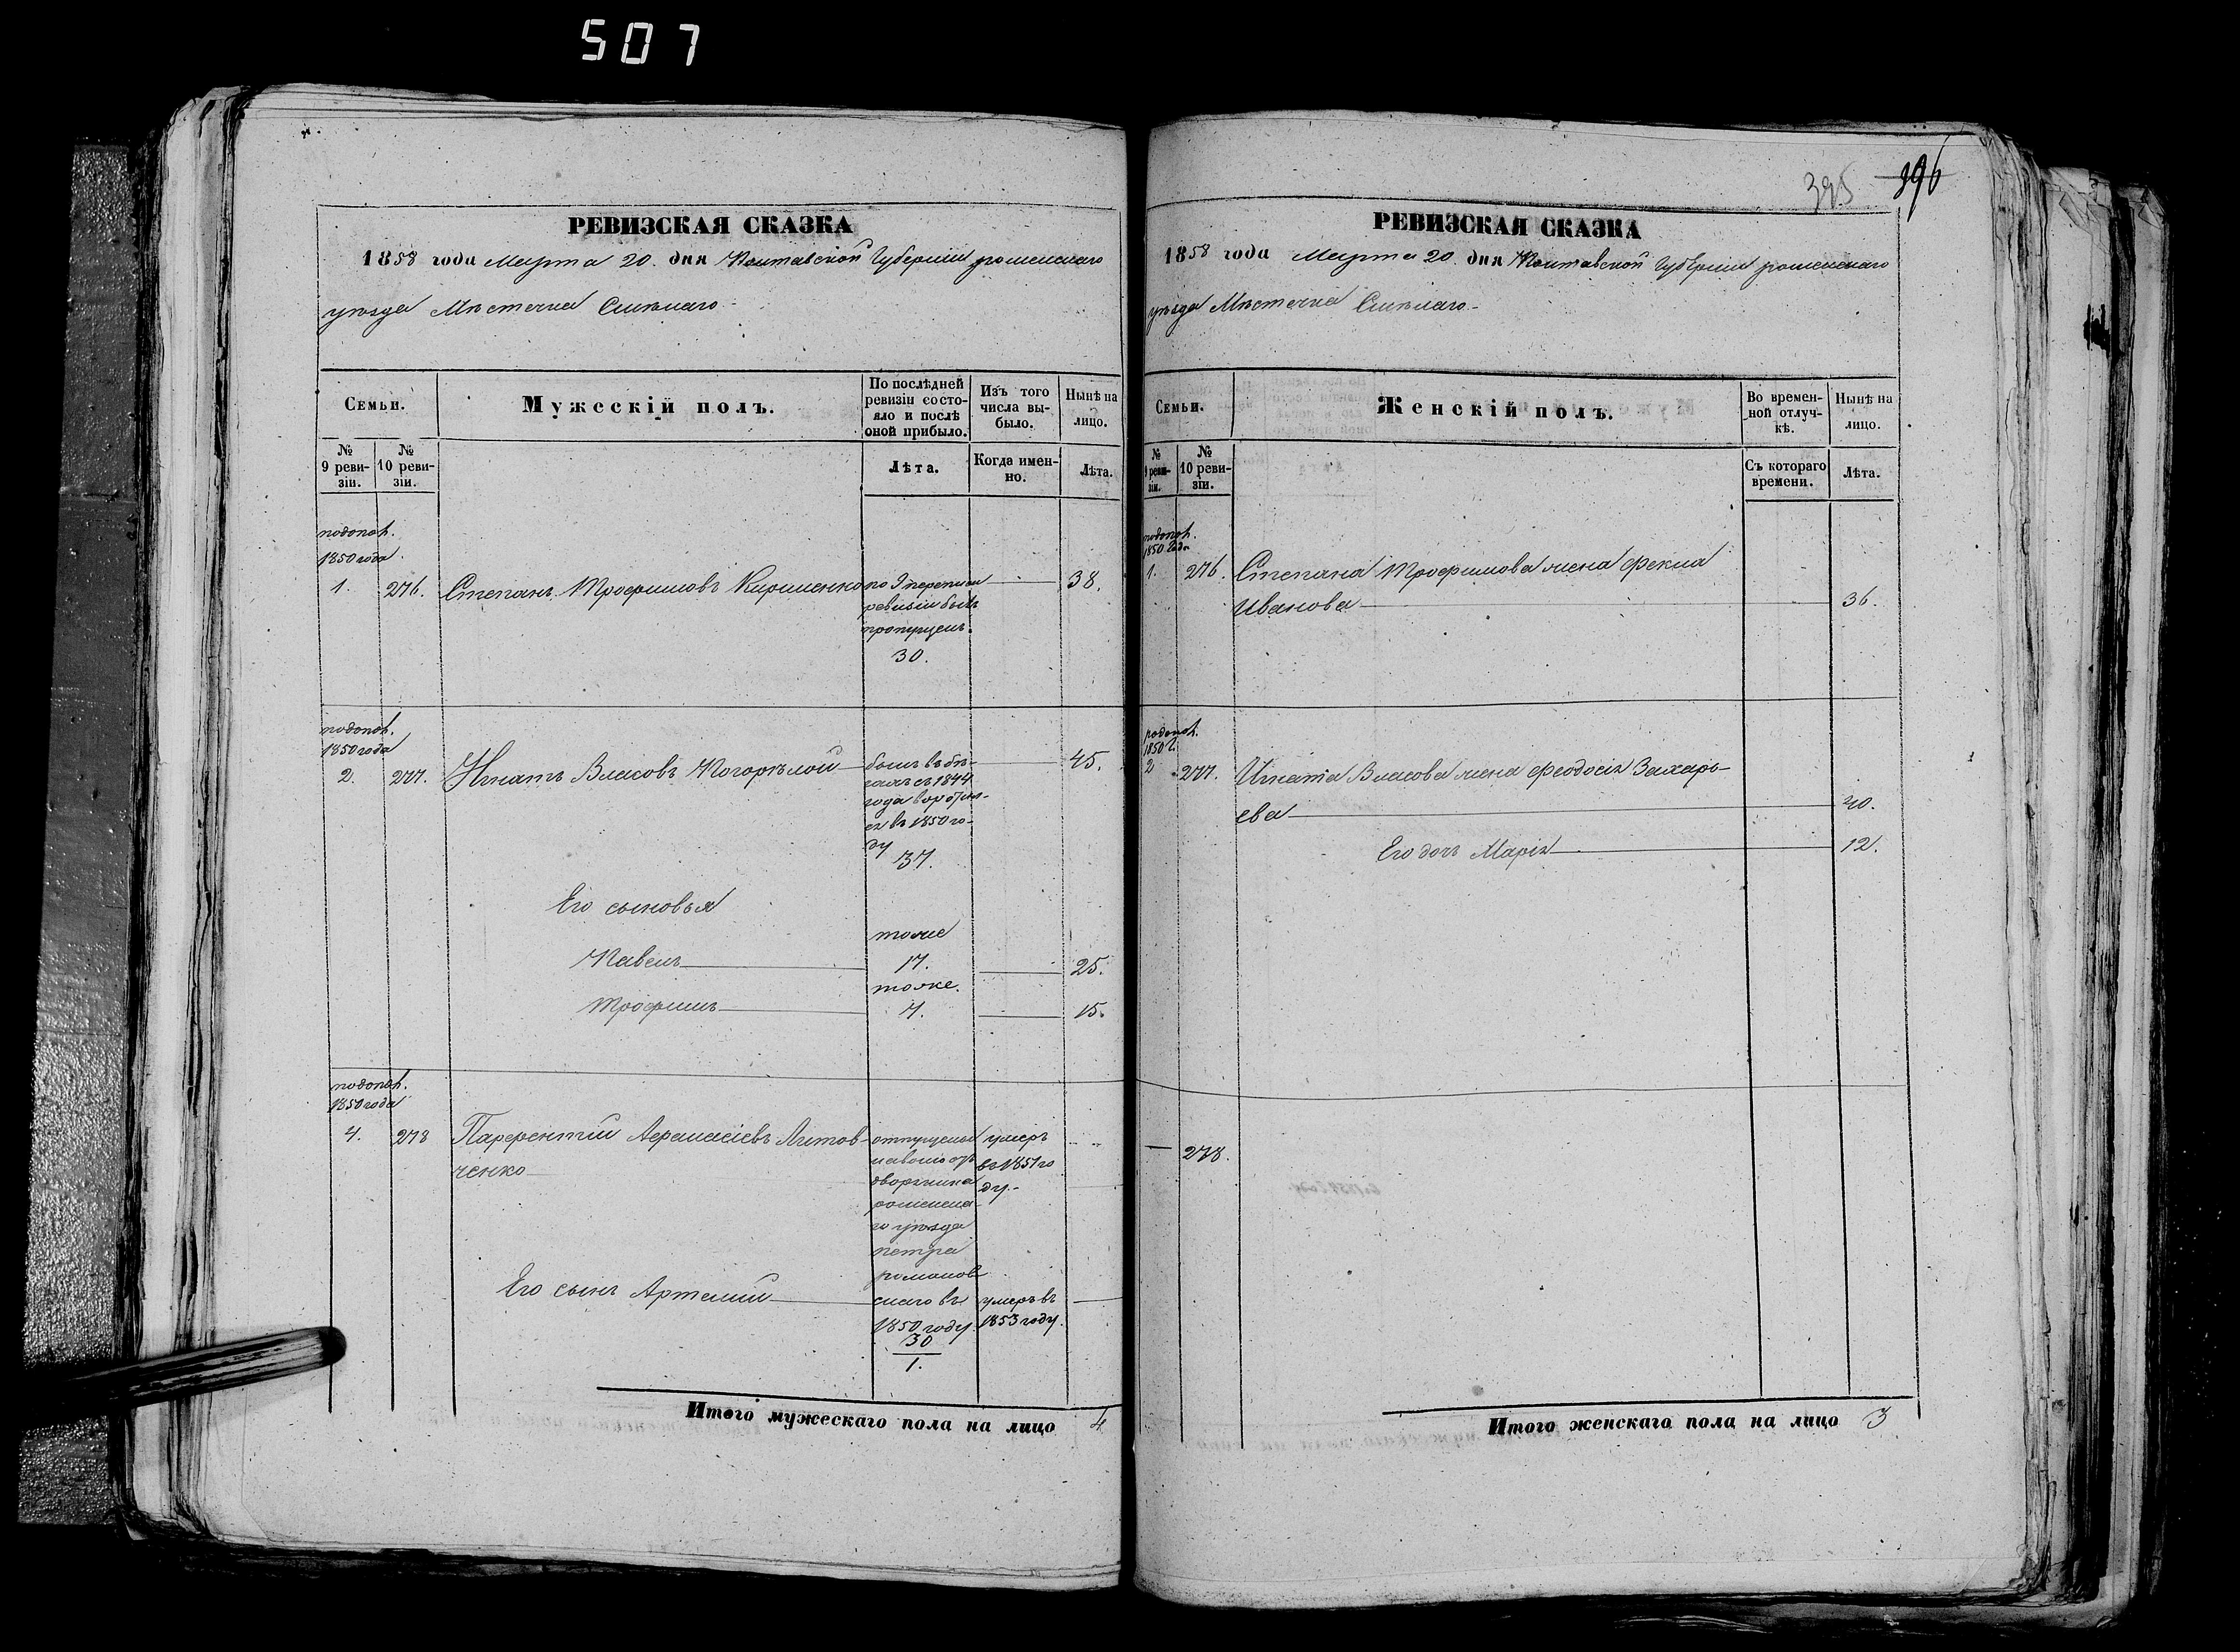 507
РЕВИЗСКАЯ СКАЗКА
1858 года Марта 20. дня Полтавской Губерніи роменскаго
уѣзда Мѣстечка Смѣлаго
Семьи.
Мужескій полъ.
По послѣдней ревизіи состо-
яло и послѣ оной прибыло.
Изъ того числа вы-
было.
Нынѣ на лицо.
№ 9 реви-
зіи.
№ 10 реви-
зіи.
Лѣта.
Когда имен-
но.
Лѣта.
подопол.
1850 года.
1. 276. Степанъ Трофимовъ Кириченко по 9 переписи 38.
ревизіи былъ
пропущенъ.
30.
подопол.
1850 года
2. 277. Игнатъ Власовъ Погорѣлой былъ въ бѣ- 45.
гахъ съ 1844
года воротил-
ся въ 1850 го-
ду
37.
Его сыновья
тоже
Павелъ 17. 25.
тоже.
Трофимъ 7. 15.
подопол.
1850 года
4. 278 Парфентій Афанасіевъ Литов- отпущены умеръ
ченко на волю отъ въ 1851 го
дворянина ду.
роменска-
го уѣзда
петра
романов
Его сынъ Артемій скаго въ умеръ въ
1850 году. 1853 году.
30
1.
Итого мужескаго пола на лицо 4
395 396
РЕВИЗСКАЯ СКАЗКА
1858 года Марта 20 дня Полтавской Губерніи роменскаго
уѣзда Мѣстечка Смѣлаго
Семьи.
Женскій полъ.
Во времен-
ной отлуч-
кѣ.
Нынѣ на лицо.
№ 9 реви-
зіи.
№ 10 реви-
зіи.
Съ котораго времени.
Лѣта.
подопол.
1850 года
1. 276. Степана Трофимова жена Фекла
Иванова 36.
подопол.
1850 г.
2 277. Игната Власова жена Феодосія Захарь-
ева 40.
Его дочь Марія 12.
278.
Итого женскаго пола на лицо 3